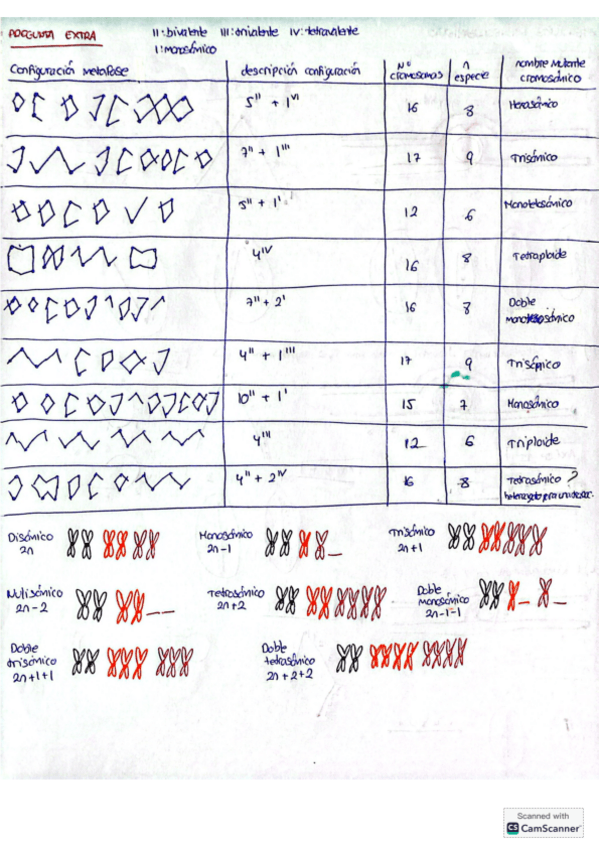 PREGUNTA EXTRA II: bivalente III: trivalente IV: tetravalente
I: monosómico
Configuración metafase descripción configuración Nº cromosomas n especie nombre mutante cromosómico
5'' + 1^VI 16 8 Hexasómico
7'' + 1''' 17 9 Trisómico
5'' + 1' 12 6 Monotelosómico
4^IV 16 8 Tetraploide
7'' + 2' 16 8 Doble monosómico
4'' + 1''' 17 9 Trisómico
10'' + 1' 15 7 Monosómico
4''' 12 6 Triploide
4'' + 2^IV 16 8 Tetrasómico ?
Disómico Monosómico Trisómico
2n 2n-1 2n+1
Nulisómico Tetrasómico Doble monosómico
2n-2 2n+2 2n-1-1
Doble trisómico Doble tetrasómico
2n+1+1 2n+2+2
Scanned with
CS CamScanner